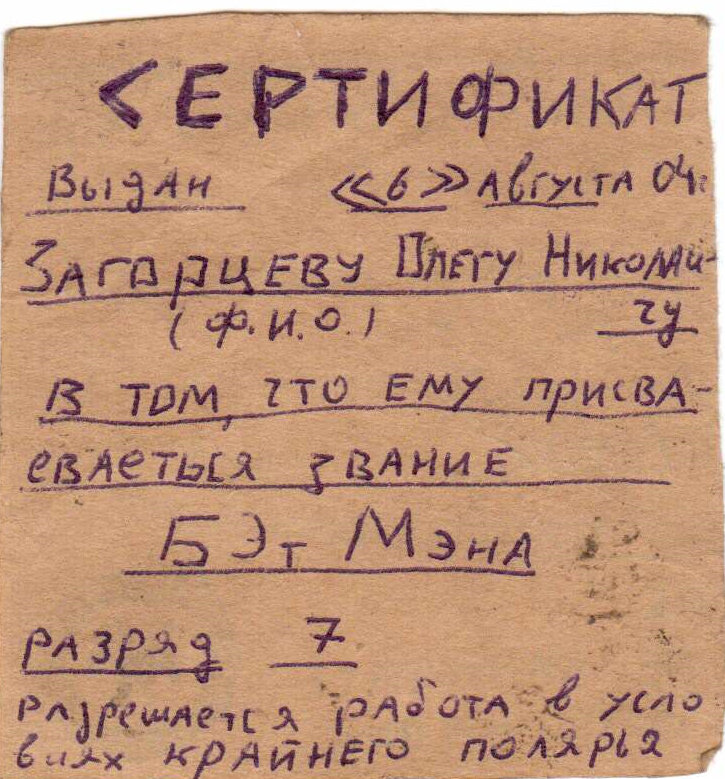 СЕРТИФИКАТ
Выдан «6» Августа 04г
Загорцеву Олегу Николаи-
(Ф.И.О.) чу
в том, что ему присва-
еваеться звание
Бэт Мэна
разряд 7
разрешается работа в усло
виях крайнего полярья